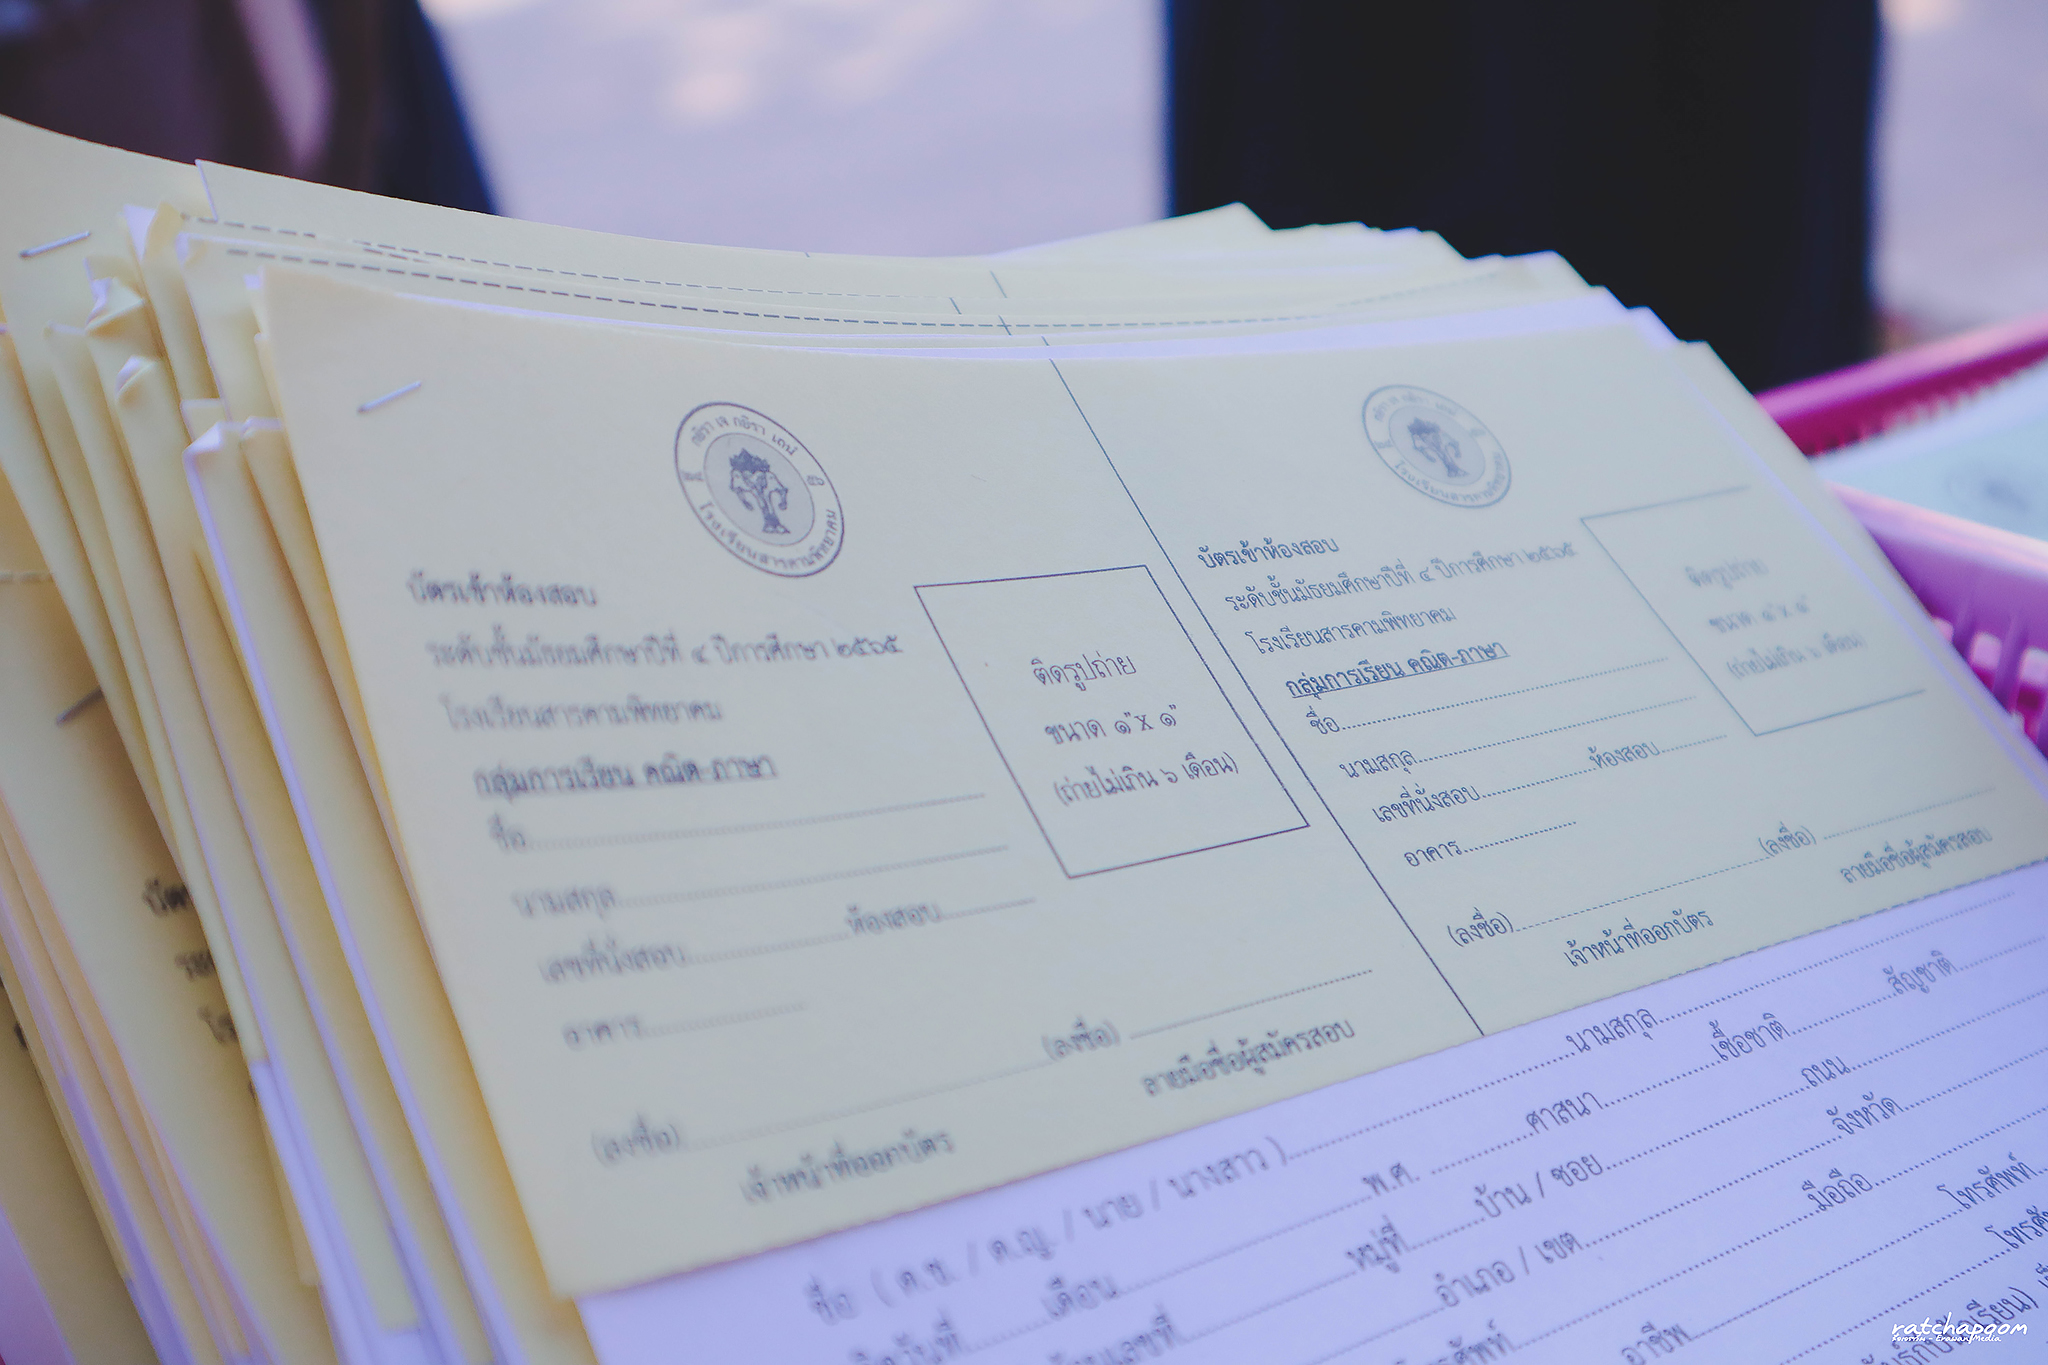 กยิรา เจ กยิรา เถนํ
โรงเรียนสารคามพิทยาคม
บัตรเข้าห้องสอบ
ระดับชั้นมัธยมศึกษาปีที่ ๔ ปีการศึกษา ๒๕๖๕
โรงเรียนสารคามพิทยาคม
กลุ่มการเรียน คณิต-ภาษา
ชื่อ
นามสกุล
เลขที่นั่งสอบ ห้องสอบ
อาคาร
(ลงชื่อ)
ลายมือชื่อผู้สมัครสอบ
(ลงชื่อ)
เจ้าหน้าที่ออกบัตร
ติดรูปถ่าย
ขนาด ๑"x ๑"
(ถ่ายไม่เกิน ๖ เดือน)
กยิรา เจ กยิรา เถนํ
โรงเรียนสารคามพิทยาคม
บัตรเข้าห้องสอบ
ระดับชั้นมัธยมศึกษาปีที่ ๔ ปีการศึกษา ๒๕๖๕
โรงเรียนสารคามพิทยาคม
กลุ่มการเรียน คณิต-ภาษา
ชื่อ
นามสกุล
เลขที่นั่งสอบ ห้องสอบ
อาคาร
(ลงชื่อ)
ลายมือชื่อผู้สมัครสอบ
(ลงชื่อ)
เจ้าหน้าที่ออกบัตร
ติดรูปถ่าย
ขนาด ๑"x ๑"
(ถ่ายไม่เกิน ๖ เดือน)
ชื่อ ( ด.ช. / ด.ญ. / นาย / นางสาว ) นามสกุล
เดือน พ.ศ. ศาสนา เชื้อชาติ สัญชาติ
หมู่ที่ บ้าน / ซอย ถนน
อำเภอ / เขต จังหวัด
มือถือ
อาชีพ โทรศัพท์
ratchapoom